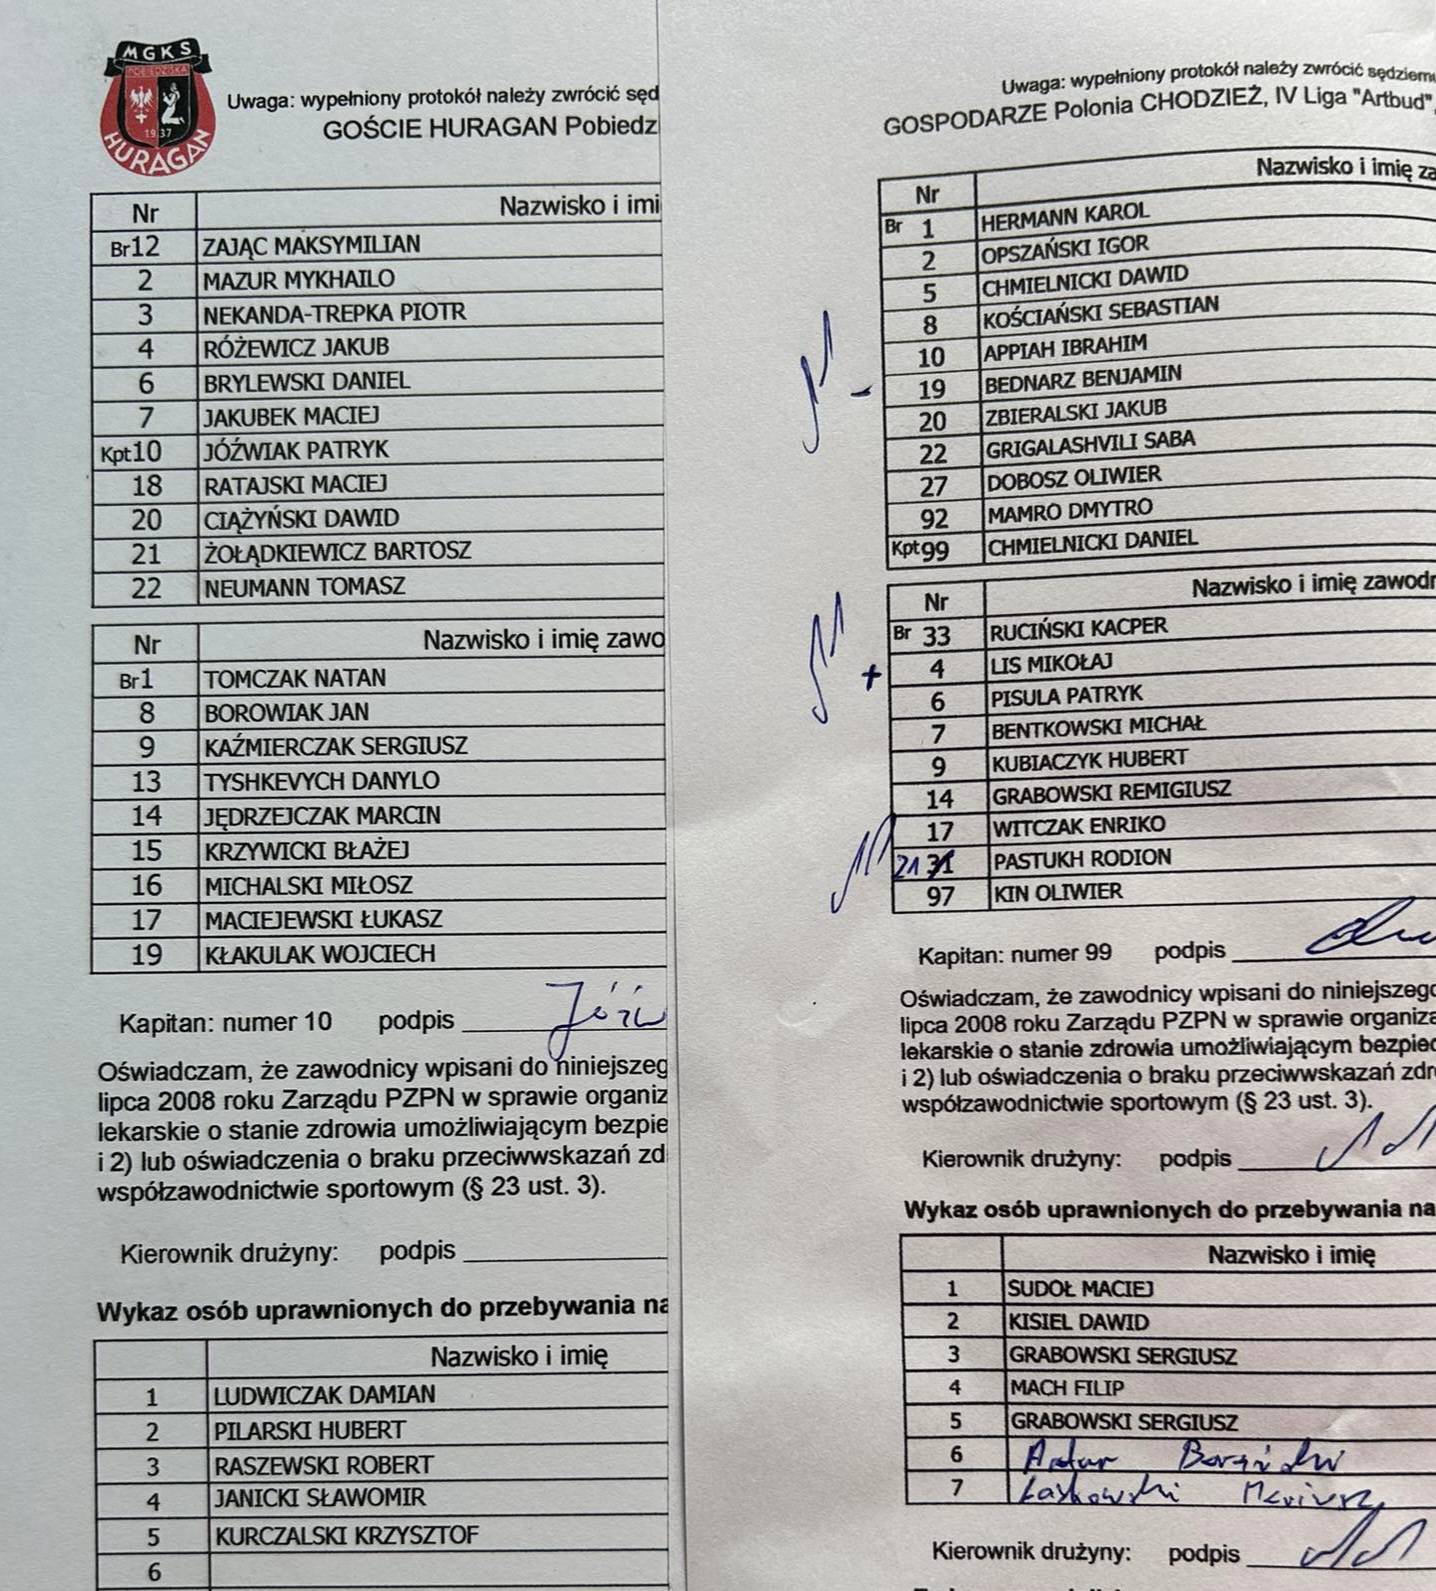 MGKS
POBIEDZISKA
1937
HURAGAN
Uwaga: wypełniony protokół należy zwrócić sęd
GOŚCIE HURAGAN Pobiedz
Nr Nazwisko i imi
Br12 ZAJĄC MAKSYMILIAN
2 MAZUR MYKHAILO
3 NEKANDA-TREPKA PIOTR
4 RÓŻEWICZ JAKUB
6 BRYLEWSKI DANIEL
7 JAKUBEK MACIEJ
Kpt10 JÓŹWIAK PATRYK
18 RATAJSKI MACIEJ
20 CIĄŻYŃSKI DAWID
21 ŻOŁĄDKIEWICZ BARTOSZ
22 NEUMANN TOMASZ
Nr Nazwisko i imię zawo
Br1 TOMCZAK NATAN
8 BOROWIAK JAN
9 KAŹMIERCZAK SERGIUSZ
13 TYSHKEVYCH DANYLO
14 JĘDRZEJCZAK MARCIN
15 KRZYWICKI BŁAŻEJ
16 MICHALSKI MIŁOSZ
17 MACIEJEWSKI ŁUKASZ
19 KŁAKULAK WOJCIECH
Kapitan: numer 10 podpis
Oświadczam, że zawodnicy wpisani do niniejszeg
lipca 2008 roku Zarządu PZPN w sprawie organiz
lekarskie o stanie zdrowia umożliwiającym bezpie
i 2) lub oświadczenia o braku przeciwwskazań zd
współzawodnictwie sportowym (§ 23 ust. 3).
Kierownik drużyny: podpis
Wykaz osób uprawnionych do przebywania na
Nazwisko i imię
1 LUDWICZAK DAMIAN
2 PILARSKI HUBERT
3 RASZEWSKI ROBERT
4 JANICKI SŁAWOMIR
5 KURCZALSKI KRZYSZTOF
6
Uwaga: wypełniony protokół należy zwrócić sędziemu
GOSPODARZE Polonia CHODZIEŻ, IV Liga "Artbud",
Nr Nazwisko i imię za
Br 1 HERMANN KAROL
2 OPSZAŃSKI IGOR
5 CHMIELNICKI DAWID
8 KOŚCIAŃSKI SEBASTIAN
10 APPIAH IBRAHIM
- 19 BEDNARZ BENJAMIN
20 ZBIERALSKI JAKUB
22 GRIGALASHVILI SABA
27 DOBOSZ OLIWIER
92 MAMRO DMYTRO
Kpt99 CHMIELNICKI DANIEL
Nr Nazwisko i imię zawodn
Br 33 RUCIŃSKI KACPER
+ 4 LIS MIKOŁAJ
6 PISULA PATRYK
7 BENTKOWSKI MICHAŁ
9 KUBIACZYK HUBERT
14 GRABOWSKI REMIGIUSZ
17 WITCZAK ENRIKO
21 31 PASTUKH RODION
97 KIN OLIWIER
Kapitan: numer 99 podpis
Oświadczam, że zawodnicy wpisani do niniejszego
lipca 2008 roku Zarządu PZPN w sprawie organiza
lekarskie o stanie zdrowia umożliwiającym bezpiec
i 2) lub oświadczenia o braku przeciwwskazań zdr
współzawodnictwie sportowym (§ 23 ust. 3).
Kierownik drużyny: podpis
Wykaz osób uprawnionych do przebywania na
Nazwisko i imię
1 SUDOŁ MACIEJ
2 KISIEL DAWID
3 GRABOWSKI SERGIUSZ
4 MACH FILIP
5 GRABOWSKI SERGIUSZ
6 Artur
7 Laskowski Mariusz
Kierownik drużyny: podpis